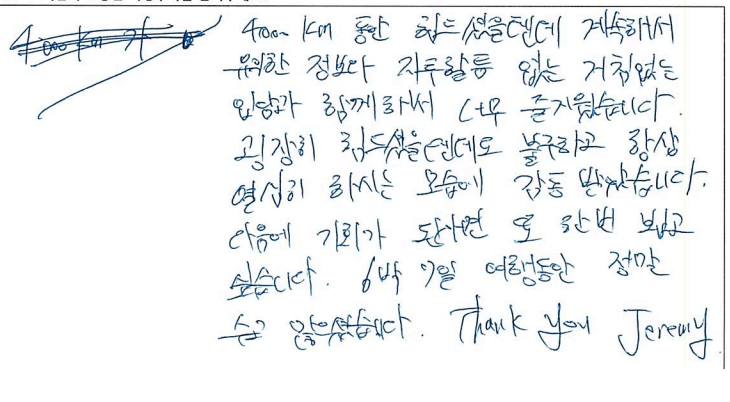 4000 km 동안 힘드셨을텐데 계속해서
유익한 정보와 지루할틈 없는 거침없는
입담과 함께해서 너무 즐거웠습니다.
굉장히 힘드셨을텐데도 불구하고 항상
열심히 하시는 모습에 감동 받았습니다.
다음에 기회가 된다면 또 한번 뵙고
싶습니다. 6박 7일 여행동안 정말
수고 많으셨습니다. Thank you Jeremy